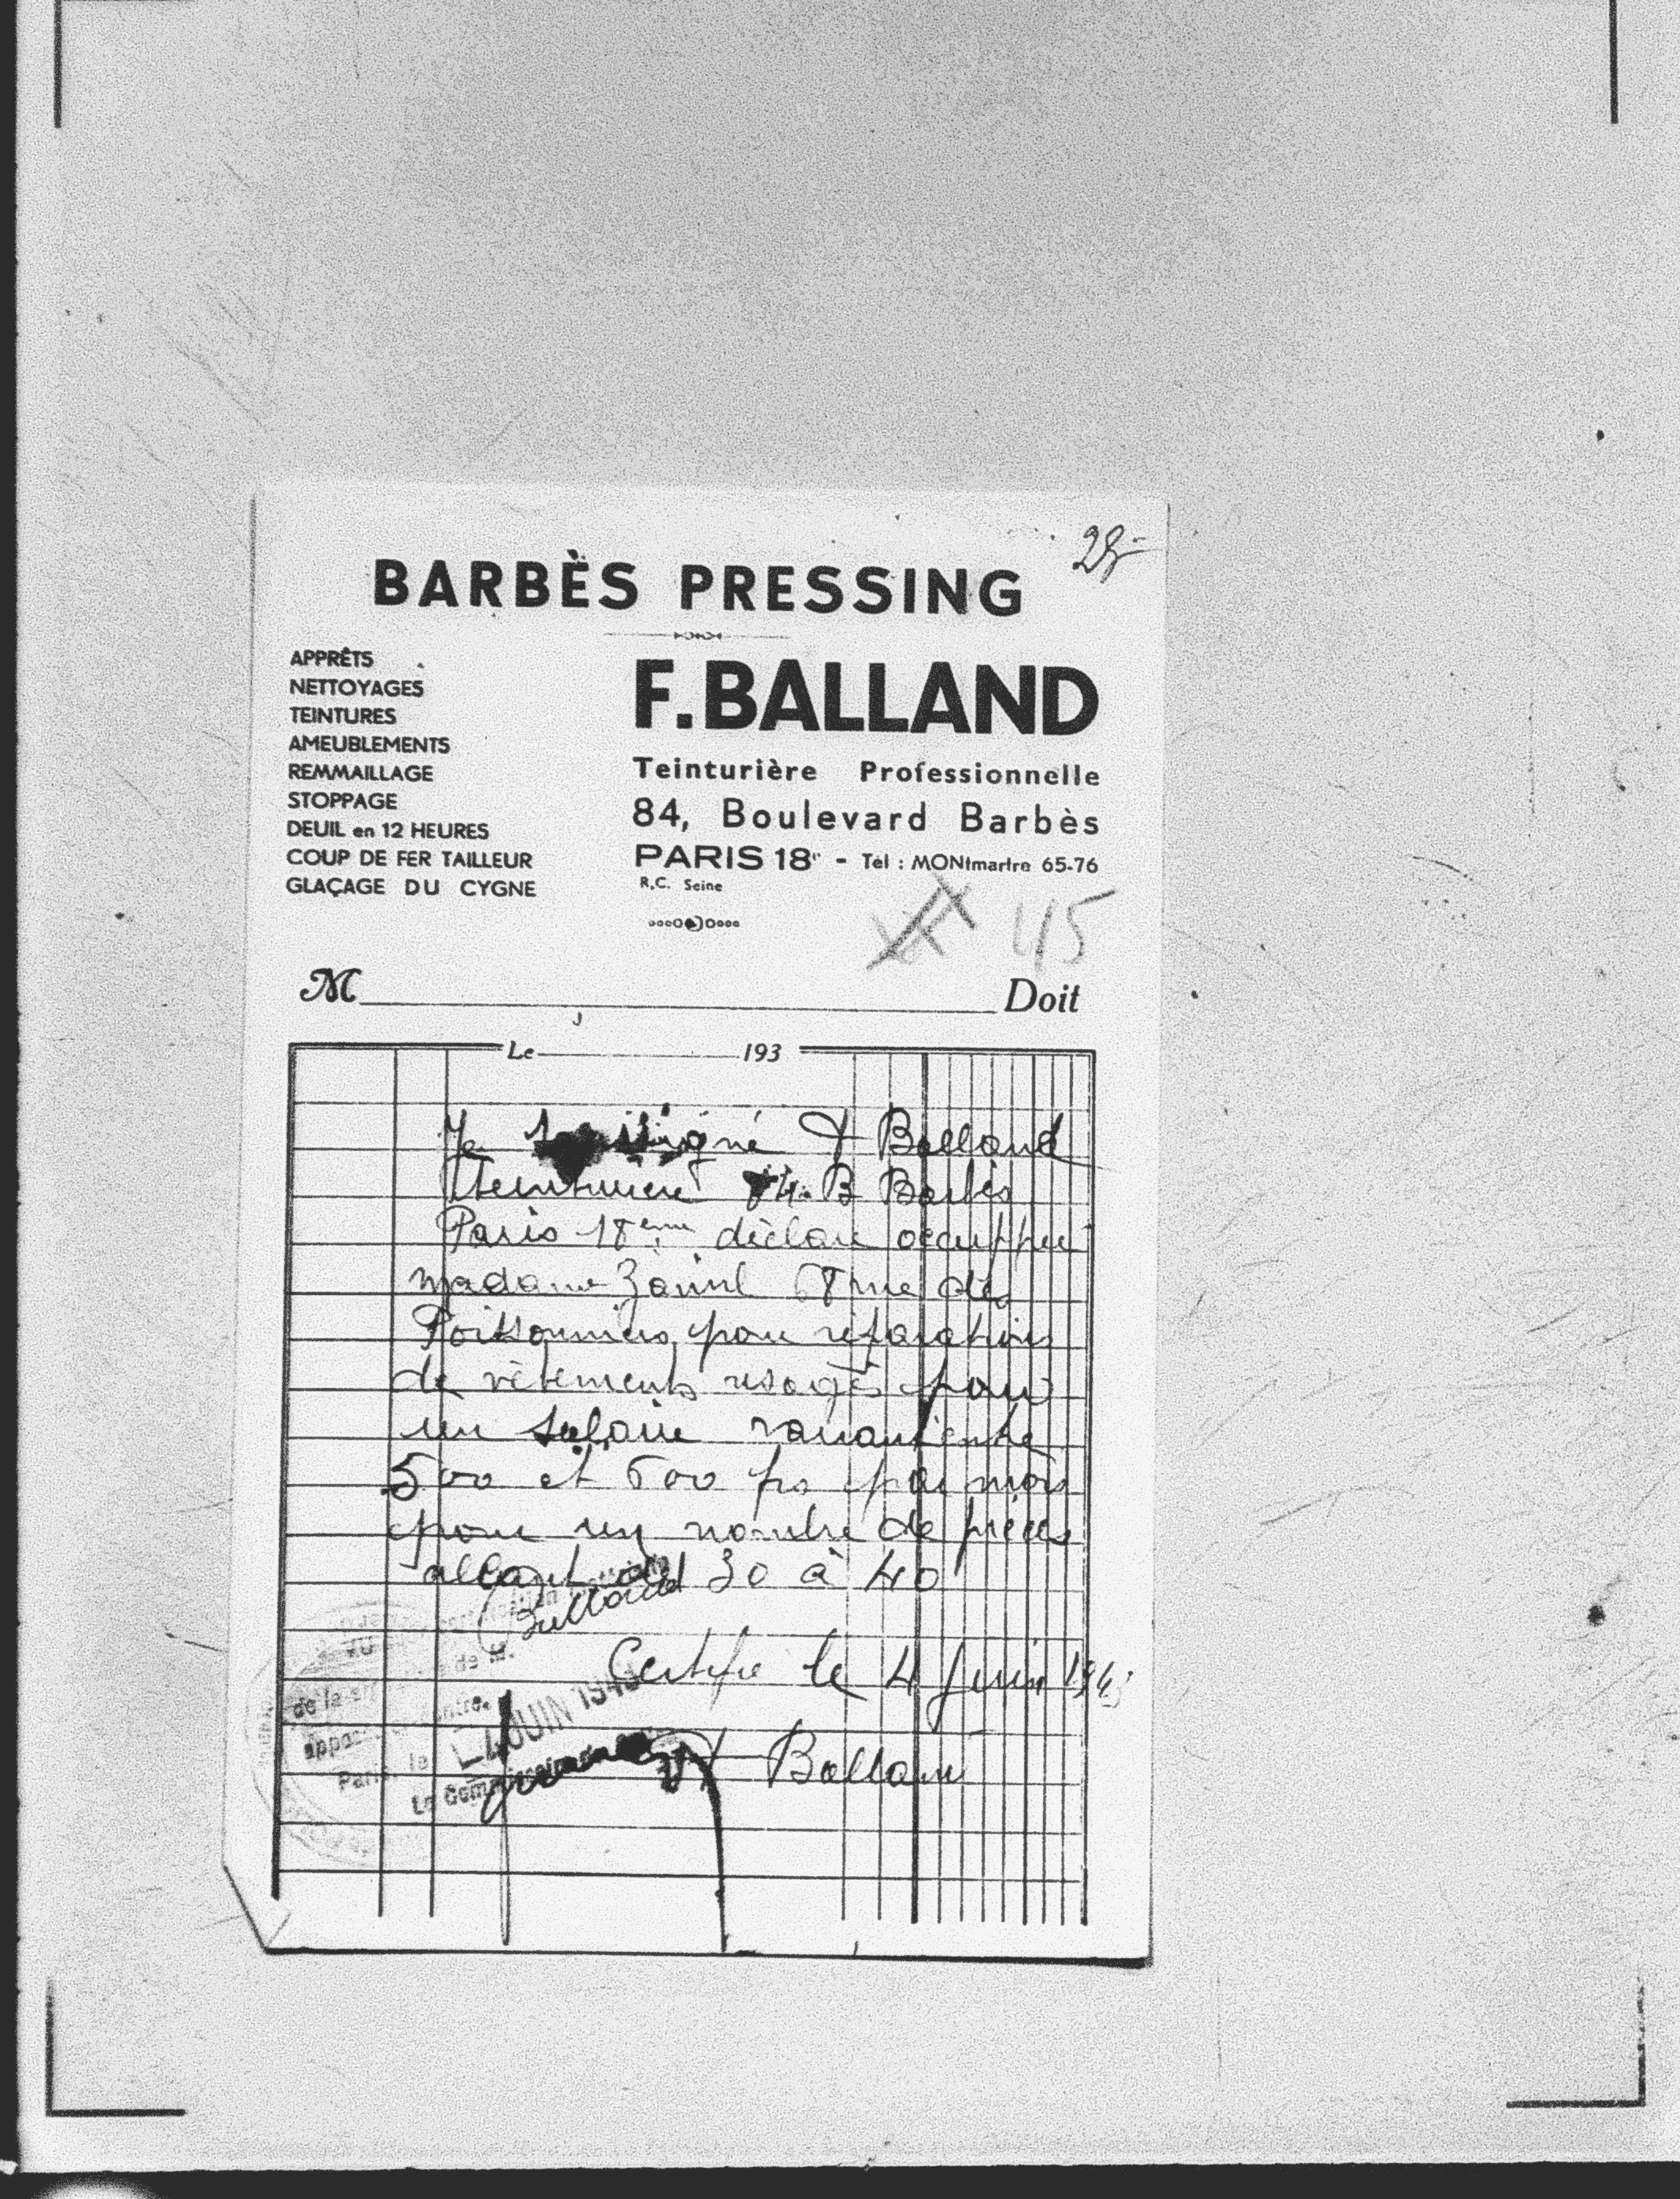 28-
BARBÈS PRESSING
APPRÊTS
NETTOYAGES
TEINTURES
AMEUBLEMENTS
REMMAILLAGE
STOPPAGE
DEUIL en 12 HEURES
COUP DE FER TAILLEUR
GLAÇAGE DU CYGNE
F. BALLAND
Teinturière Professionnelle
84, Boulevard Barbès
PARIS 18e - Tél : MONtmartre 65-76
R.C. Seine
45
M Doit
Le 193
Je soussigné F Balland
teinturière 84. B Barbès
Paris 18ème déclare occupper
madame 68 rue des
Poissonniers pour réparations
de vêtements usagés pour
un salaire variant entre
500 et 600 frs par mois
pour un nombre de pièces
allant de 30 à 40
Balland
Certifie le 4 Juin 194
F Balland
VU
de M.
de la
appo ontre.
Paris, le 4 JUIN 194
Le Commissaire